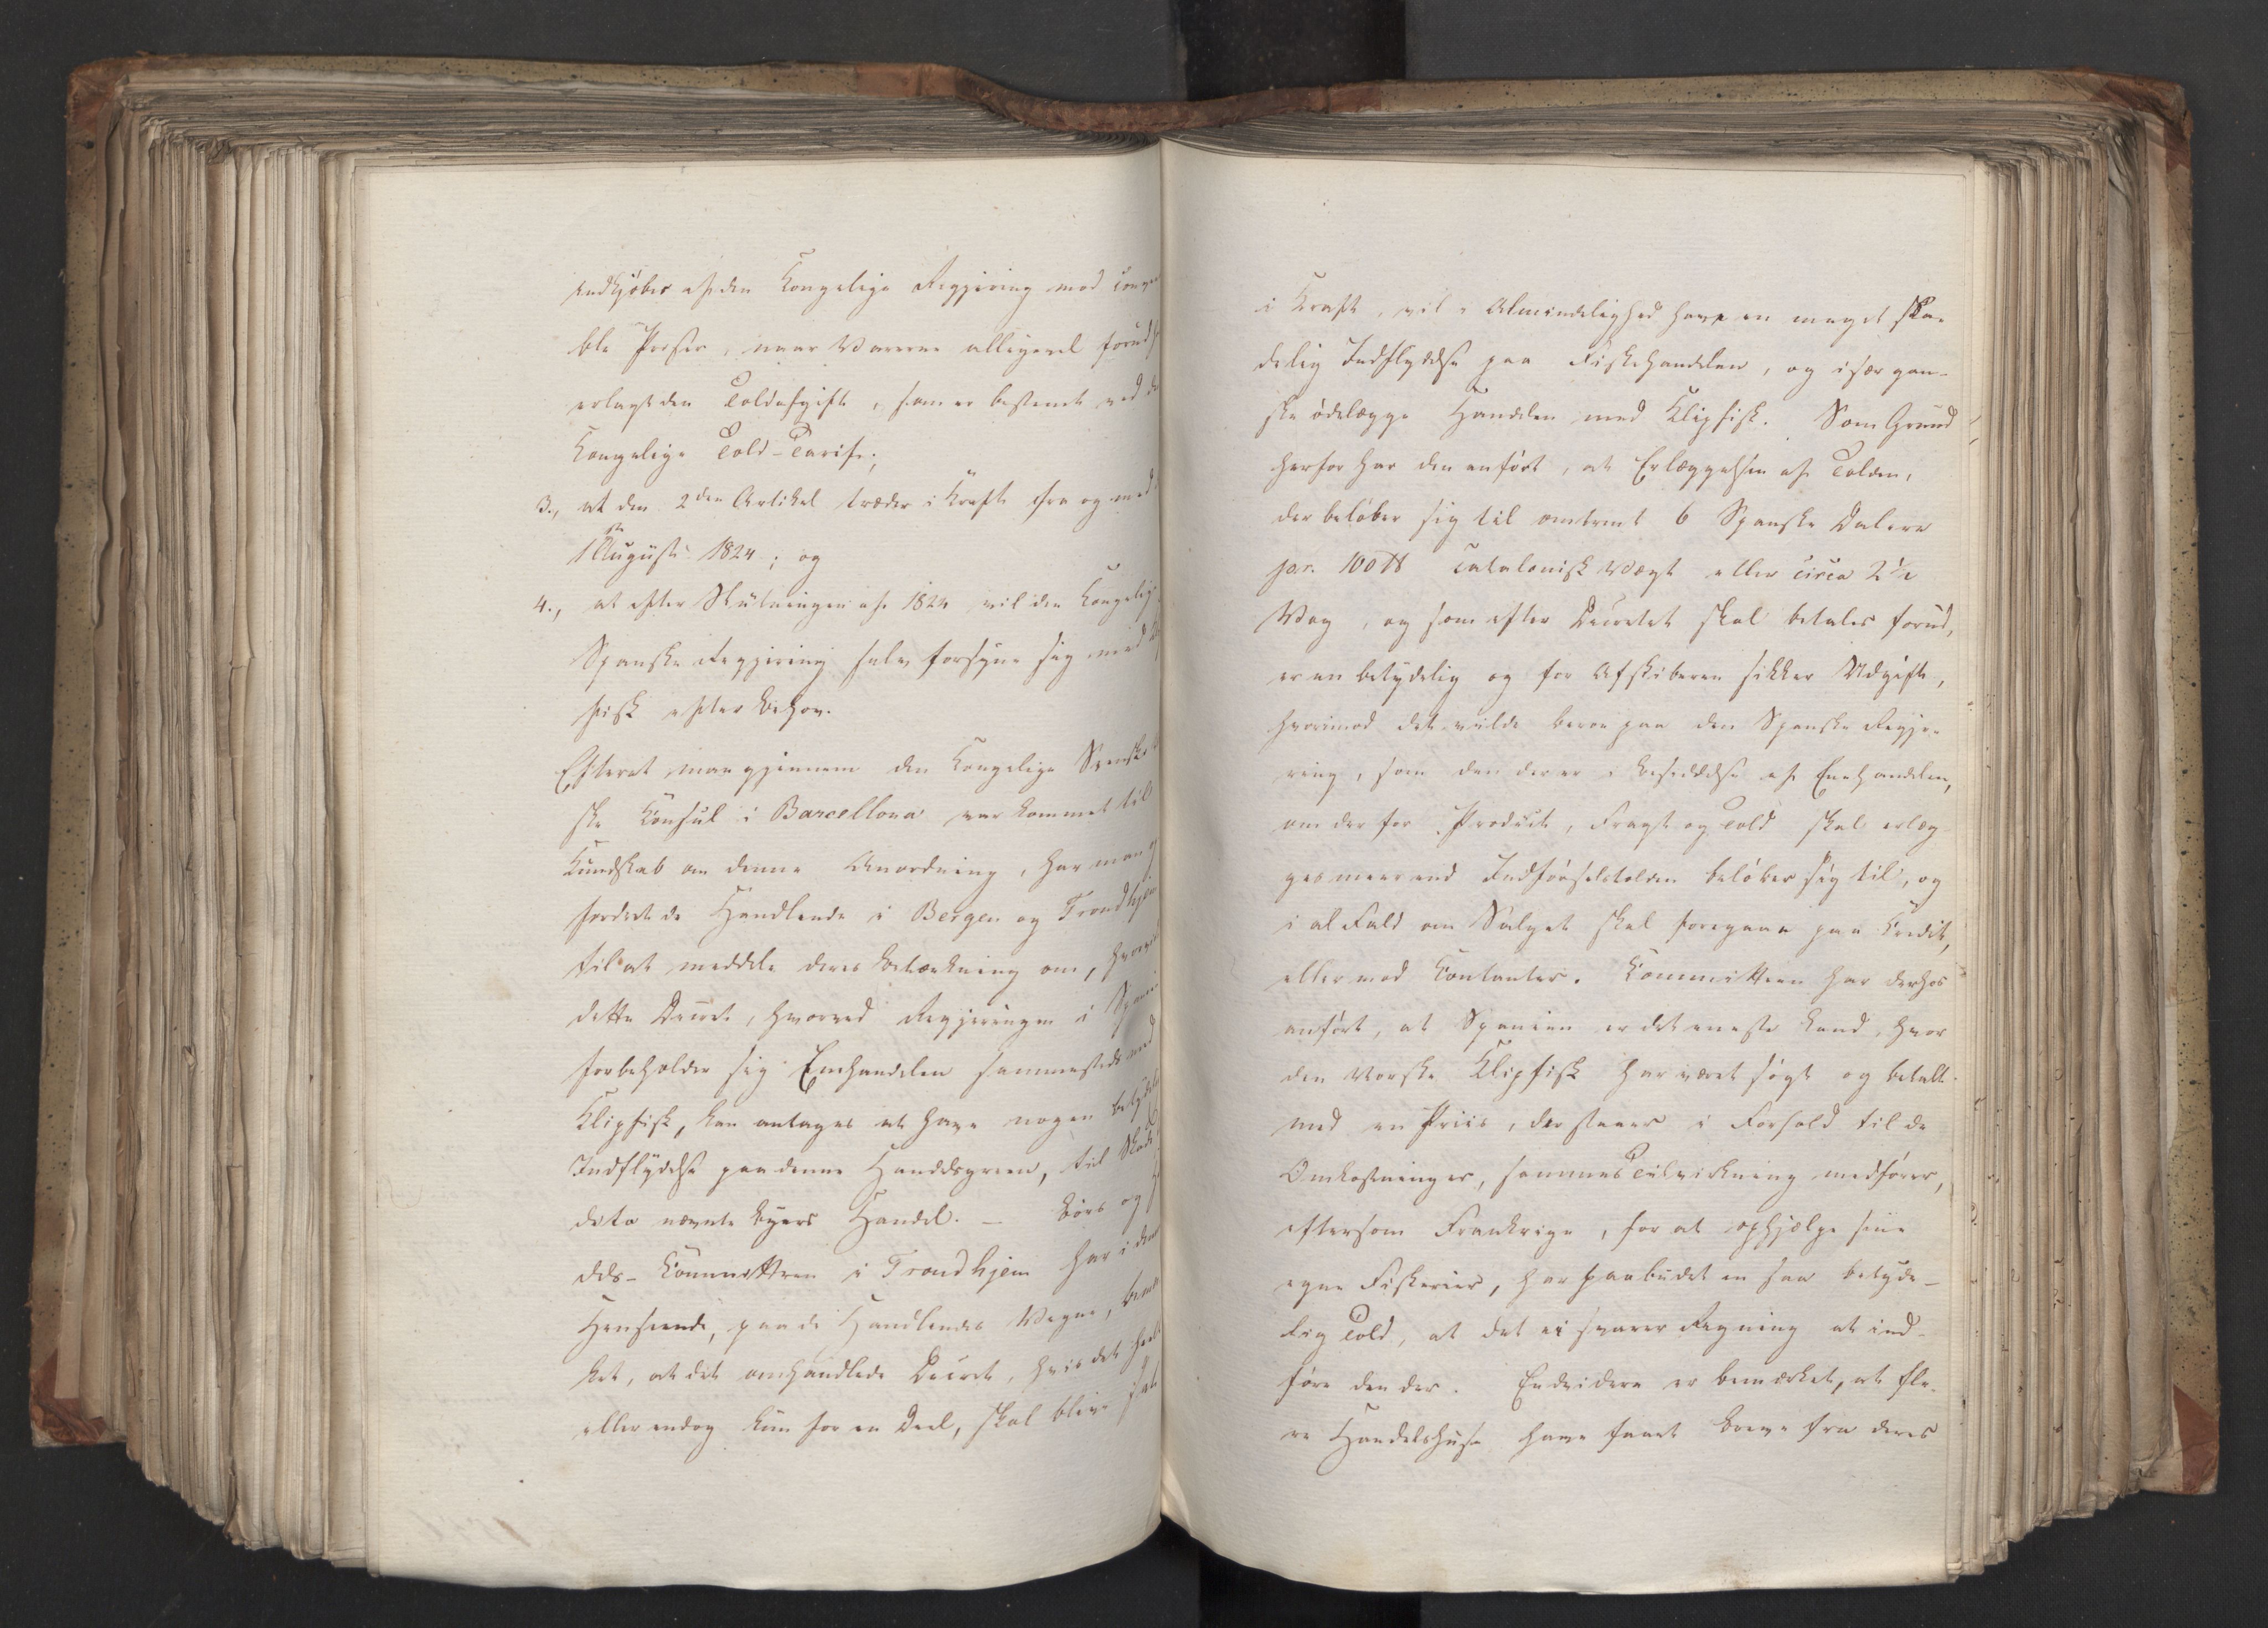 indkjøbes af den Kongelige Regjering mod
ble Priser, naar Varerne alligevel
erlagt den Toldafgift, som er bestemt ved
Kongelige Told-Tarif;
3., at den 2den Artikel træder i Kraft fra og med
1ste August 1824; og
4., at efter Slutningen af 1824 vil den
Spanske Regjering selv forsyne sig med
fisk efter Behov.
Efterat man gjennem den Kongelige
ske Consul i Barcellona var kommet til
Kundskab om denne Anordning, har man
fordret de Handlende i Bergen og
til at meddele deres Betænkning om,
dette Decret, hvorved Regjeringen i
forbeholder sig Eenhandelen sammesteds med
Klipfisk, kan antages at have nogen
Indflydelse paa denne Handelsgreen, til
disse nævnte Byers Handel. — Børs og
dels-Committeen i Trondhjem har i den
Henseende, paa de Handlendes Vegne,
ket, at det omhandlede Decret, hvis det
eller endog kun for en Deel, skal blive
i Kraft, vil i Almindelighed have en meget ska-
delig Indflydelse paa Fiskehandelen, og især gan-
ske ødelægge Handelen med Klipfisk. Som Grund
herfor har den anført, at Erlæggelsen af Tolden,
der beløber sig til omtrent 6 Spanske Dalere
pr. 100 ℔ Catalonisk Vægt eller circa 2½
Vog, og som efter Decretet skal betales forud,
er en betydelig og for Afskiberen sikker Udgift,
hvorimod det vilde beroe paa den Spanske Regje-
ring, som den der er i Besiddelse af Eenhandelen,
om der for Product, Fragt og Told skal erlæg-
ges meer end Indførselstolden beløber sig til, og
i al Fald om Salget skal foregaae paa Credit,
eller mod Contanter. Committeen har derhos
anført, at Spanien er det eneste Land, hvor
den Norske Klipfisk har været søgt og betalt
med en Priis, der staaer i Forhold til de
Omkostninger, sammes Tilvirkning medfører,
eftersom Frankrige, for at ophjælpe sine
egne Fiskerier, har paabudet en saa betyde-
lig Told, at det ei svarer Regning at ind-
føre den der. Endvidere er bemærket, at fle-
re Handelshuse have faaet Breve fra deres